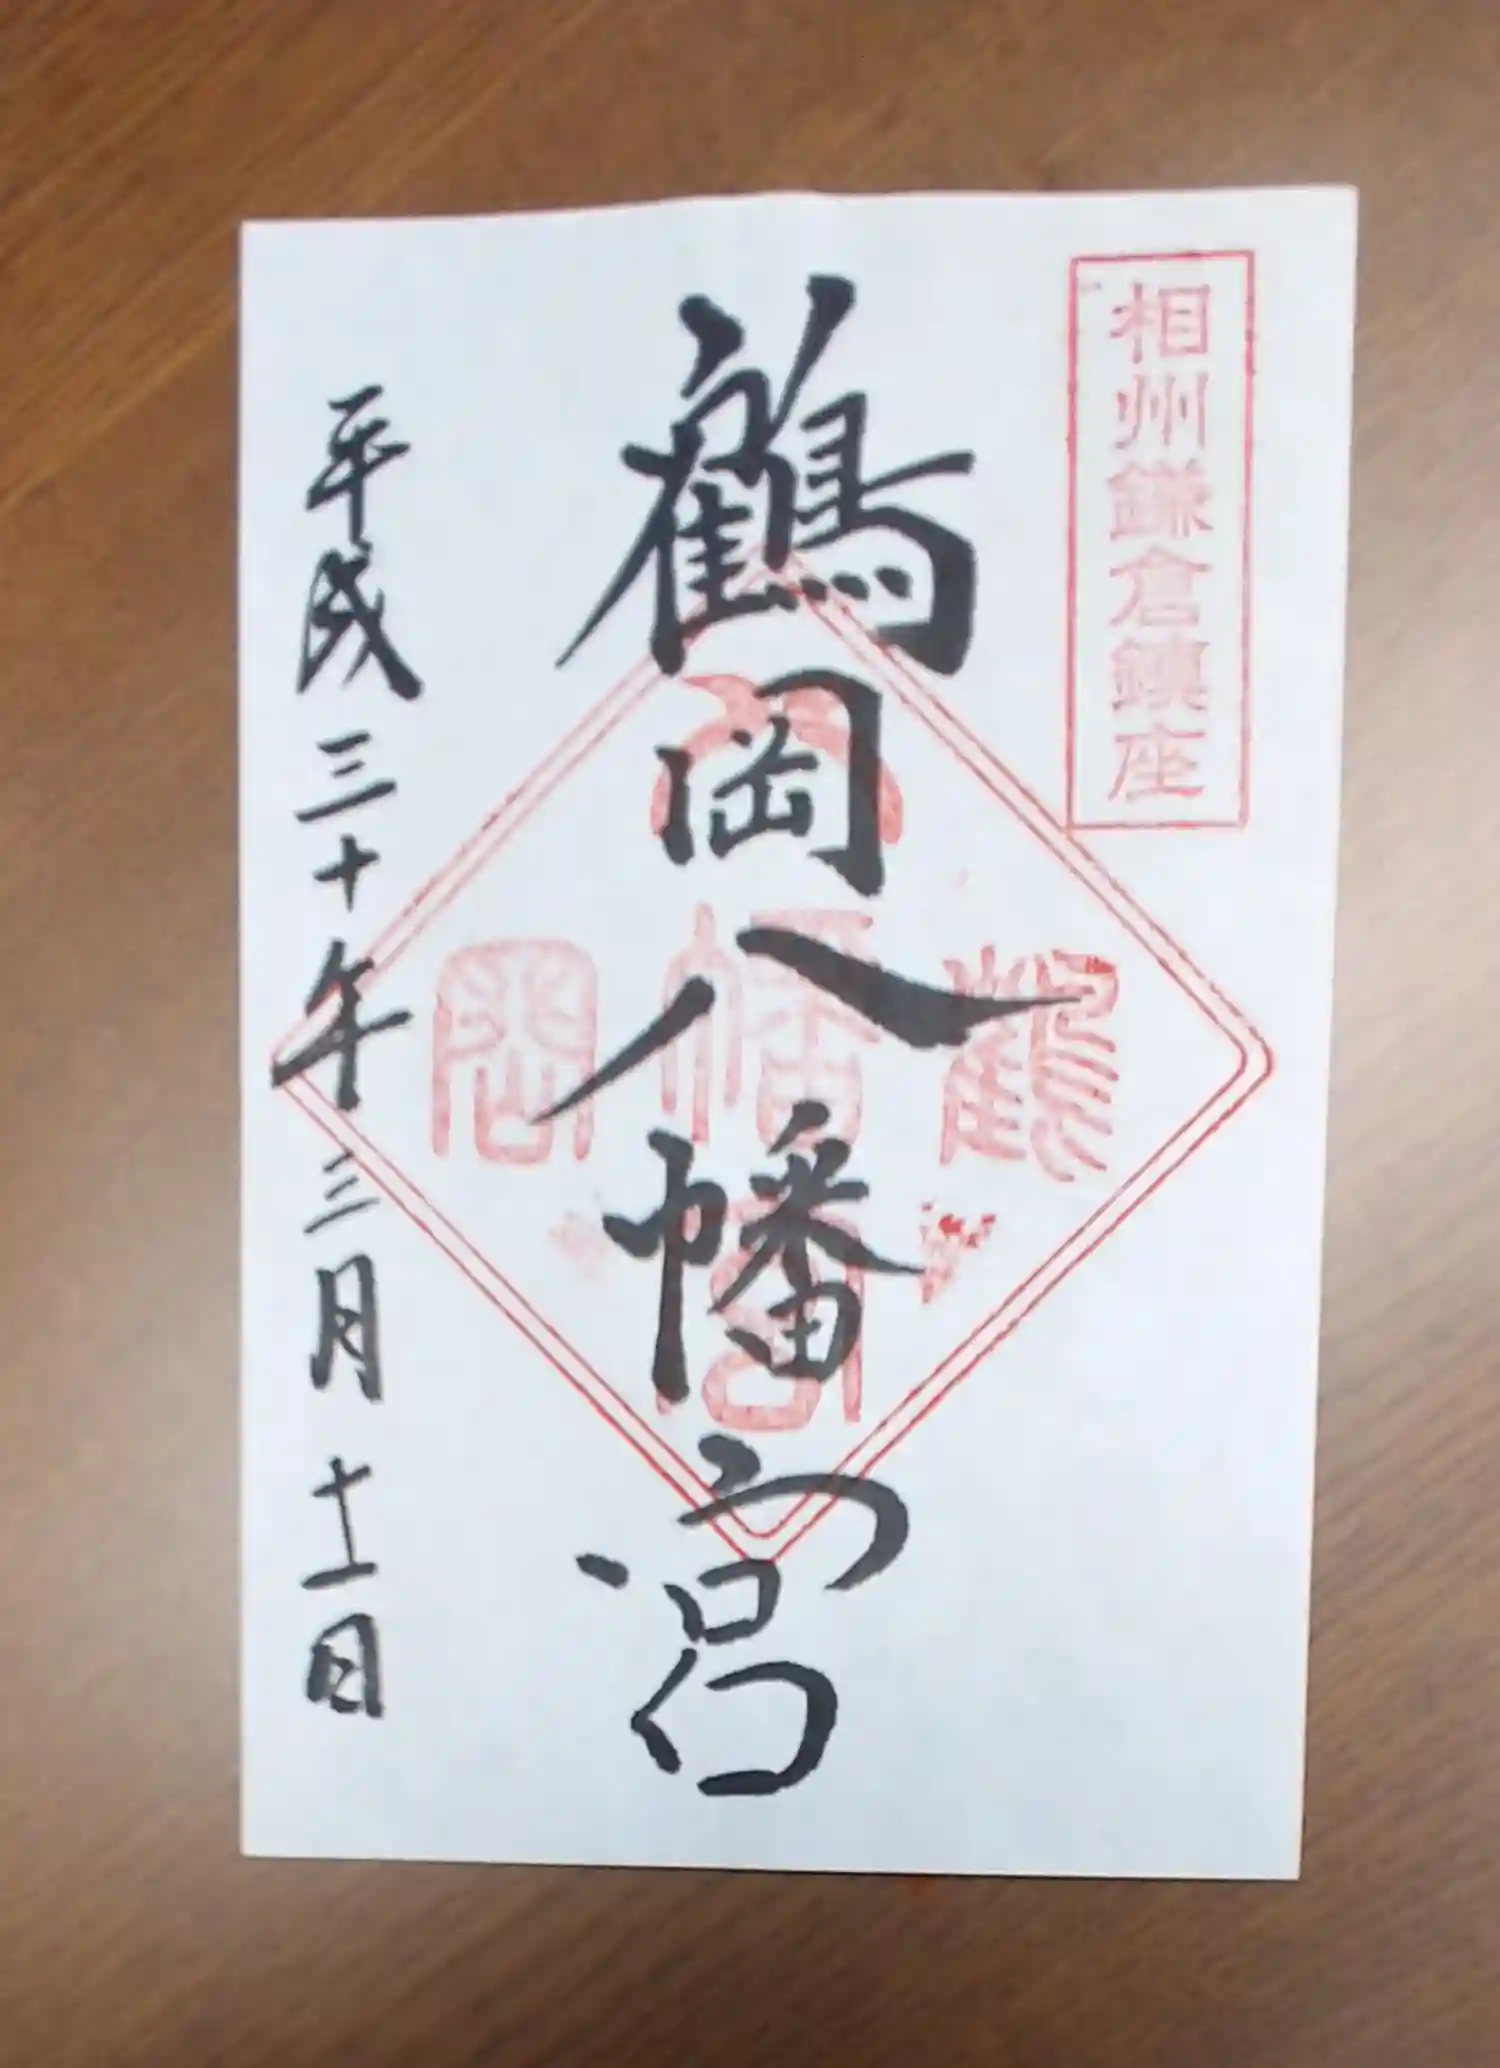 相州鎌倉鎮座
鶴岡八幡宮
鶴
八
幡
宮
岡
平成三十年三月十一日